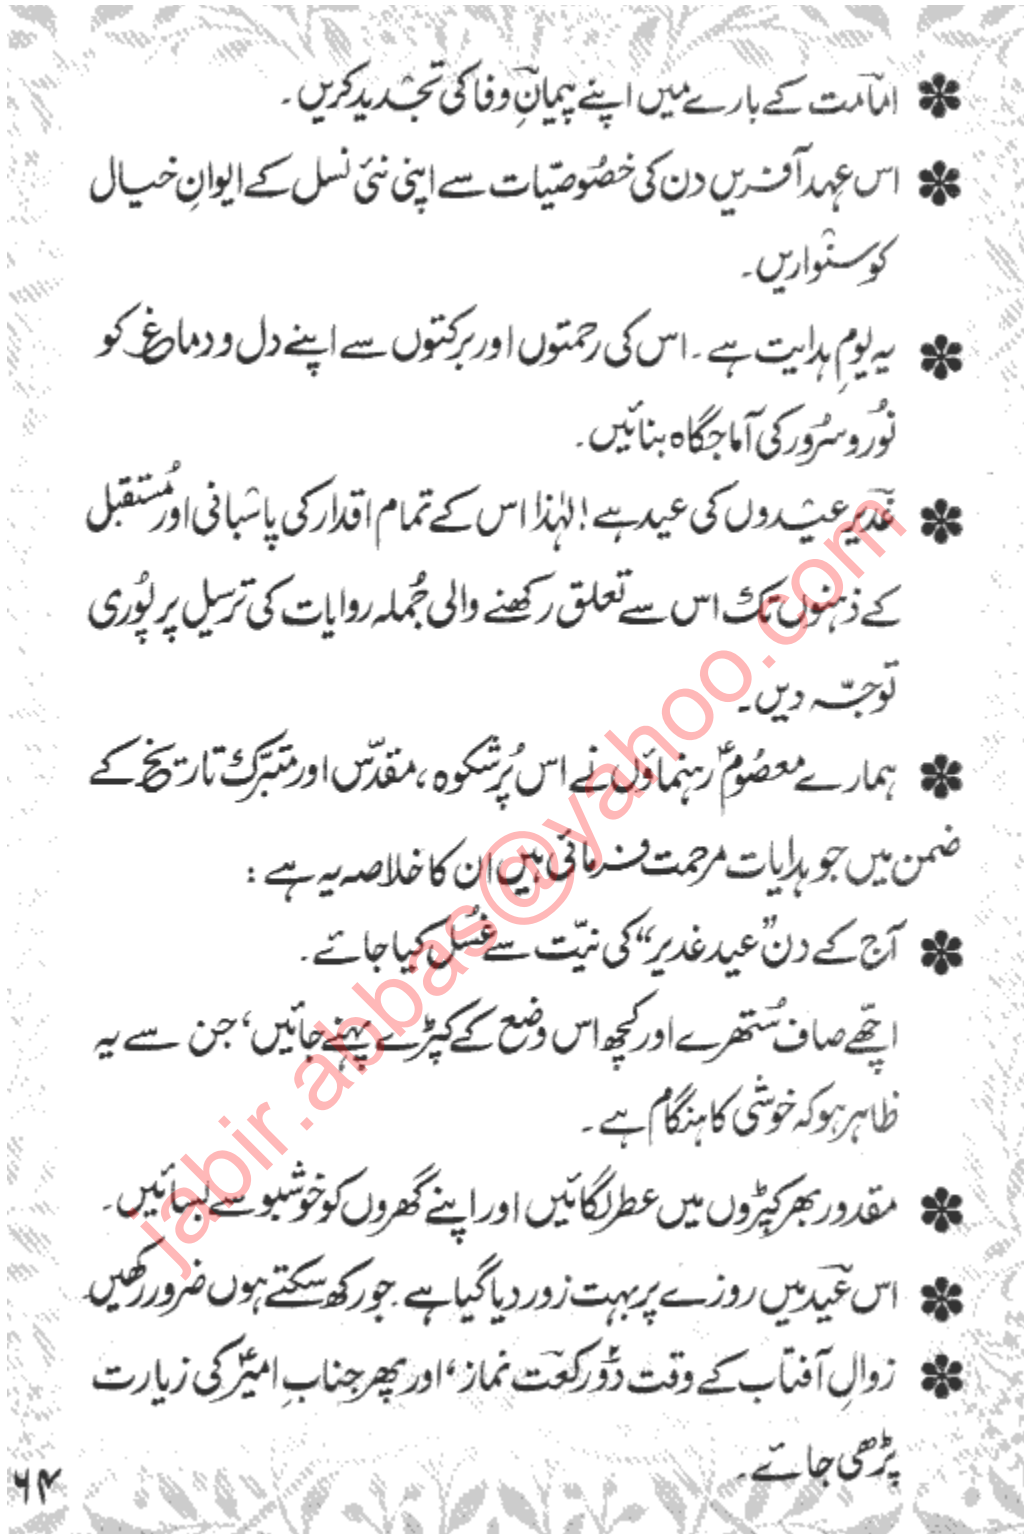 امامت کے بارے میں اپنے پیمانِ وفا کی تجدید کریں۔
اس عہد آفریں دن کی خصوصیّات سے اپنی نئی نسل کے ایوانِ خیال
کو سنواریں۔
یہ یومِ ہدایت ہے۔ اس کی رحمتوں اور برکتوں سے اپنے دل و دماغ کو
نُور و سُرور کی آماجگاہ بنائیں۔
غدیر عیدوں کی عید ہے! لہٰذا اس کے تمام اقدار کی پاسبانی اور مُستقبل
کے ذہنوں تک اس سے تعلق رکھنے والی جُملہ روایات کی ترسیل پر پُوری
توجّہ دیں۔
ہمارے معصُومؑ رہنماؤں نے اس پُرشکوہ، مقدّس اور متبرّک تاریخ کے
ضمن میں جو ہدایات مرحمت فرمائی ہیں ان کا خلاصہ یہ ہے :
آج کے دن ”عید غدیر“ کی نیّت سے غُسل کیا جائے۔
اچّھے صاف سُتھرے اور کچھ اس وضع کے کپڑے پہنے جائیں، جن سے یہ
ظاہر ہو کہ خوشی کا ہنگام ہے۔
مقدور بھر کپڑوں میں عطر لگائیں اور اپنے گھروں کو خوشبو سے بسائیں۔
اس عید میں روزے پر بہت زور دیا گیا ہے۔ جو رکھ سکتے ہوں ضرور رکھیں
زوالِ آفتاب کے وقت دُو رکعت نماز، اور پھر جنابِ امیرؑ کی زیارت
پڑھی جائے۔
۶۴
jabir.abbas@yahoo.com